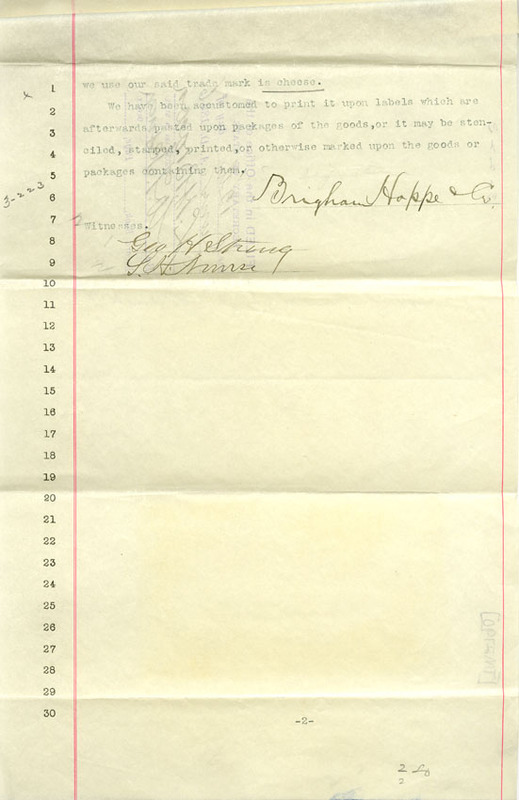 1 we use our said trade mark is cheese.
2 We have been accustomed to print it upon labels which are
3 afterwards pasted upon packages of the goods,or it may be sten-
4 ciled, stamped, printed,or otherwise marked upon the goods or
5 packages containing them.
3-223
6 Brigham Hoppe & Co.
7 Witnesses.
8 Geo H. Strong
9
10
11
12
13
14
15
16
17
18
19
20
21
22
23
24
25
26
27
28
29
30
-2-